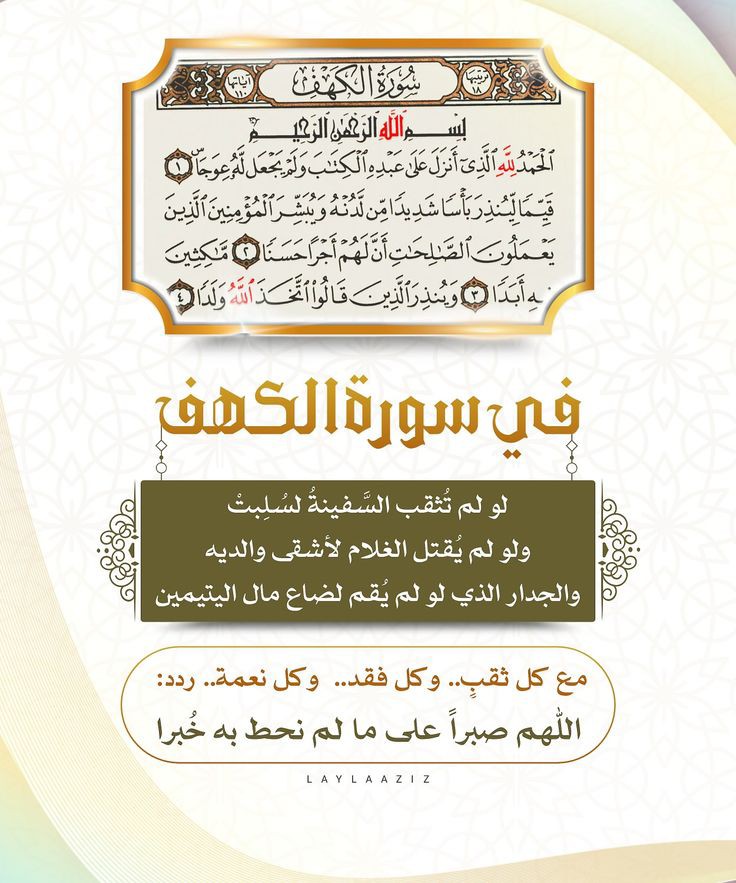 سُورَةُ الكَهْفِ
ترتيبها ١٨
آياتها ١١٠
بِسْمِ ٱللَّهِ ٱلرَّحْمَٰنِ ٱلرَّحِيمِ
ٱلْحَمْدُ لِلَّهِ ٱلَّذِىٓ أَنزَلَ عَلَىٰ عَبْدِهِ ٱلْكِتَٰبَ وَلَمْ يَجْعَل لَّهُۥ عِوَجَاۜ ١
قَيِّمًا لِّيُنذِرَ بَأْسًا شَدِيدًا مِّن لَّدُنْهُ وَيُبَشِّرَ ٱلْمُؤْمِنِينَ ٱلَّذِينَ
يَعْمَلُونَ ٱلصَّٰلِحَٰتِ أَنَّ لَهُمْ أَجْرًا حَسَنًا ٢ مَّٰكِثِينَ
فِيهِ أَبَدًا ٣ وَيُنذِرَ ٱلَّذِينَ قَالُوا۟ ٱتَّخَذَ ٱللَّهُ وَلَدًا ٤
في سورة الكهف
لو لم تُثقب السَّفينةُ لسُلِبتْ
ولو لم يُقتل الغلام لأشقى والديه
والجدار الذي لو لم يُقم لضاع مال اليتيمين
مع كل ثقبٍ.. وكل فقد.. وكل نعمة.. ردد:
اللهم صبراً على ما لم نحط به خُبرا
LAYLAAZIZ